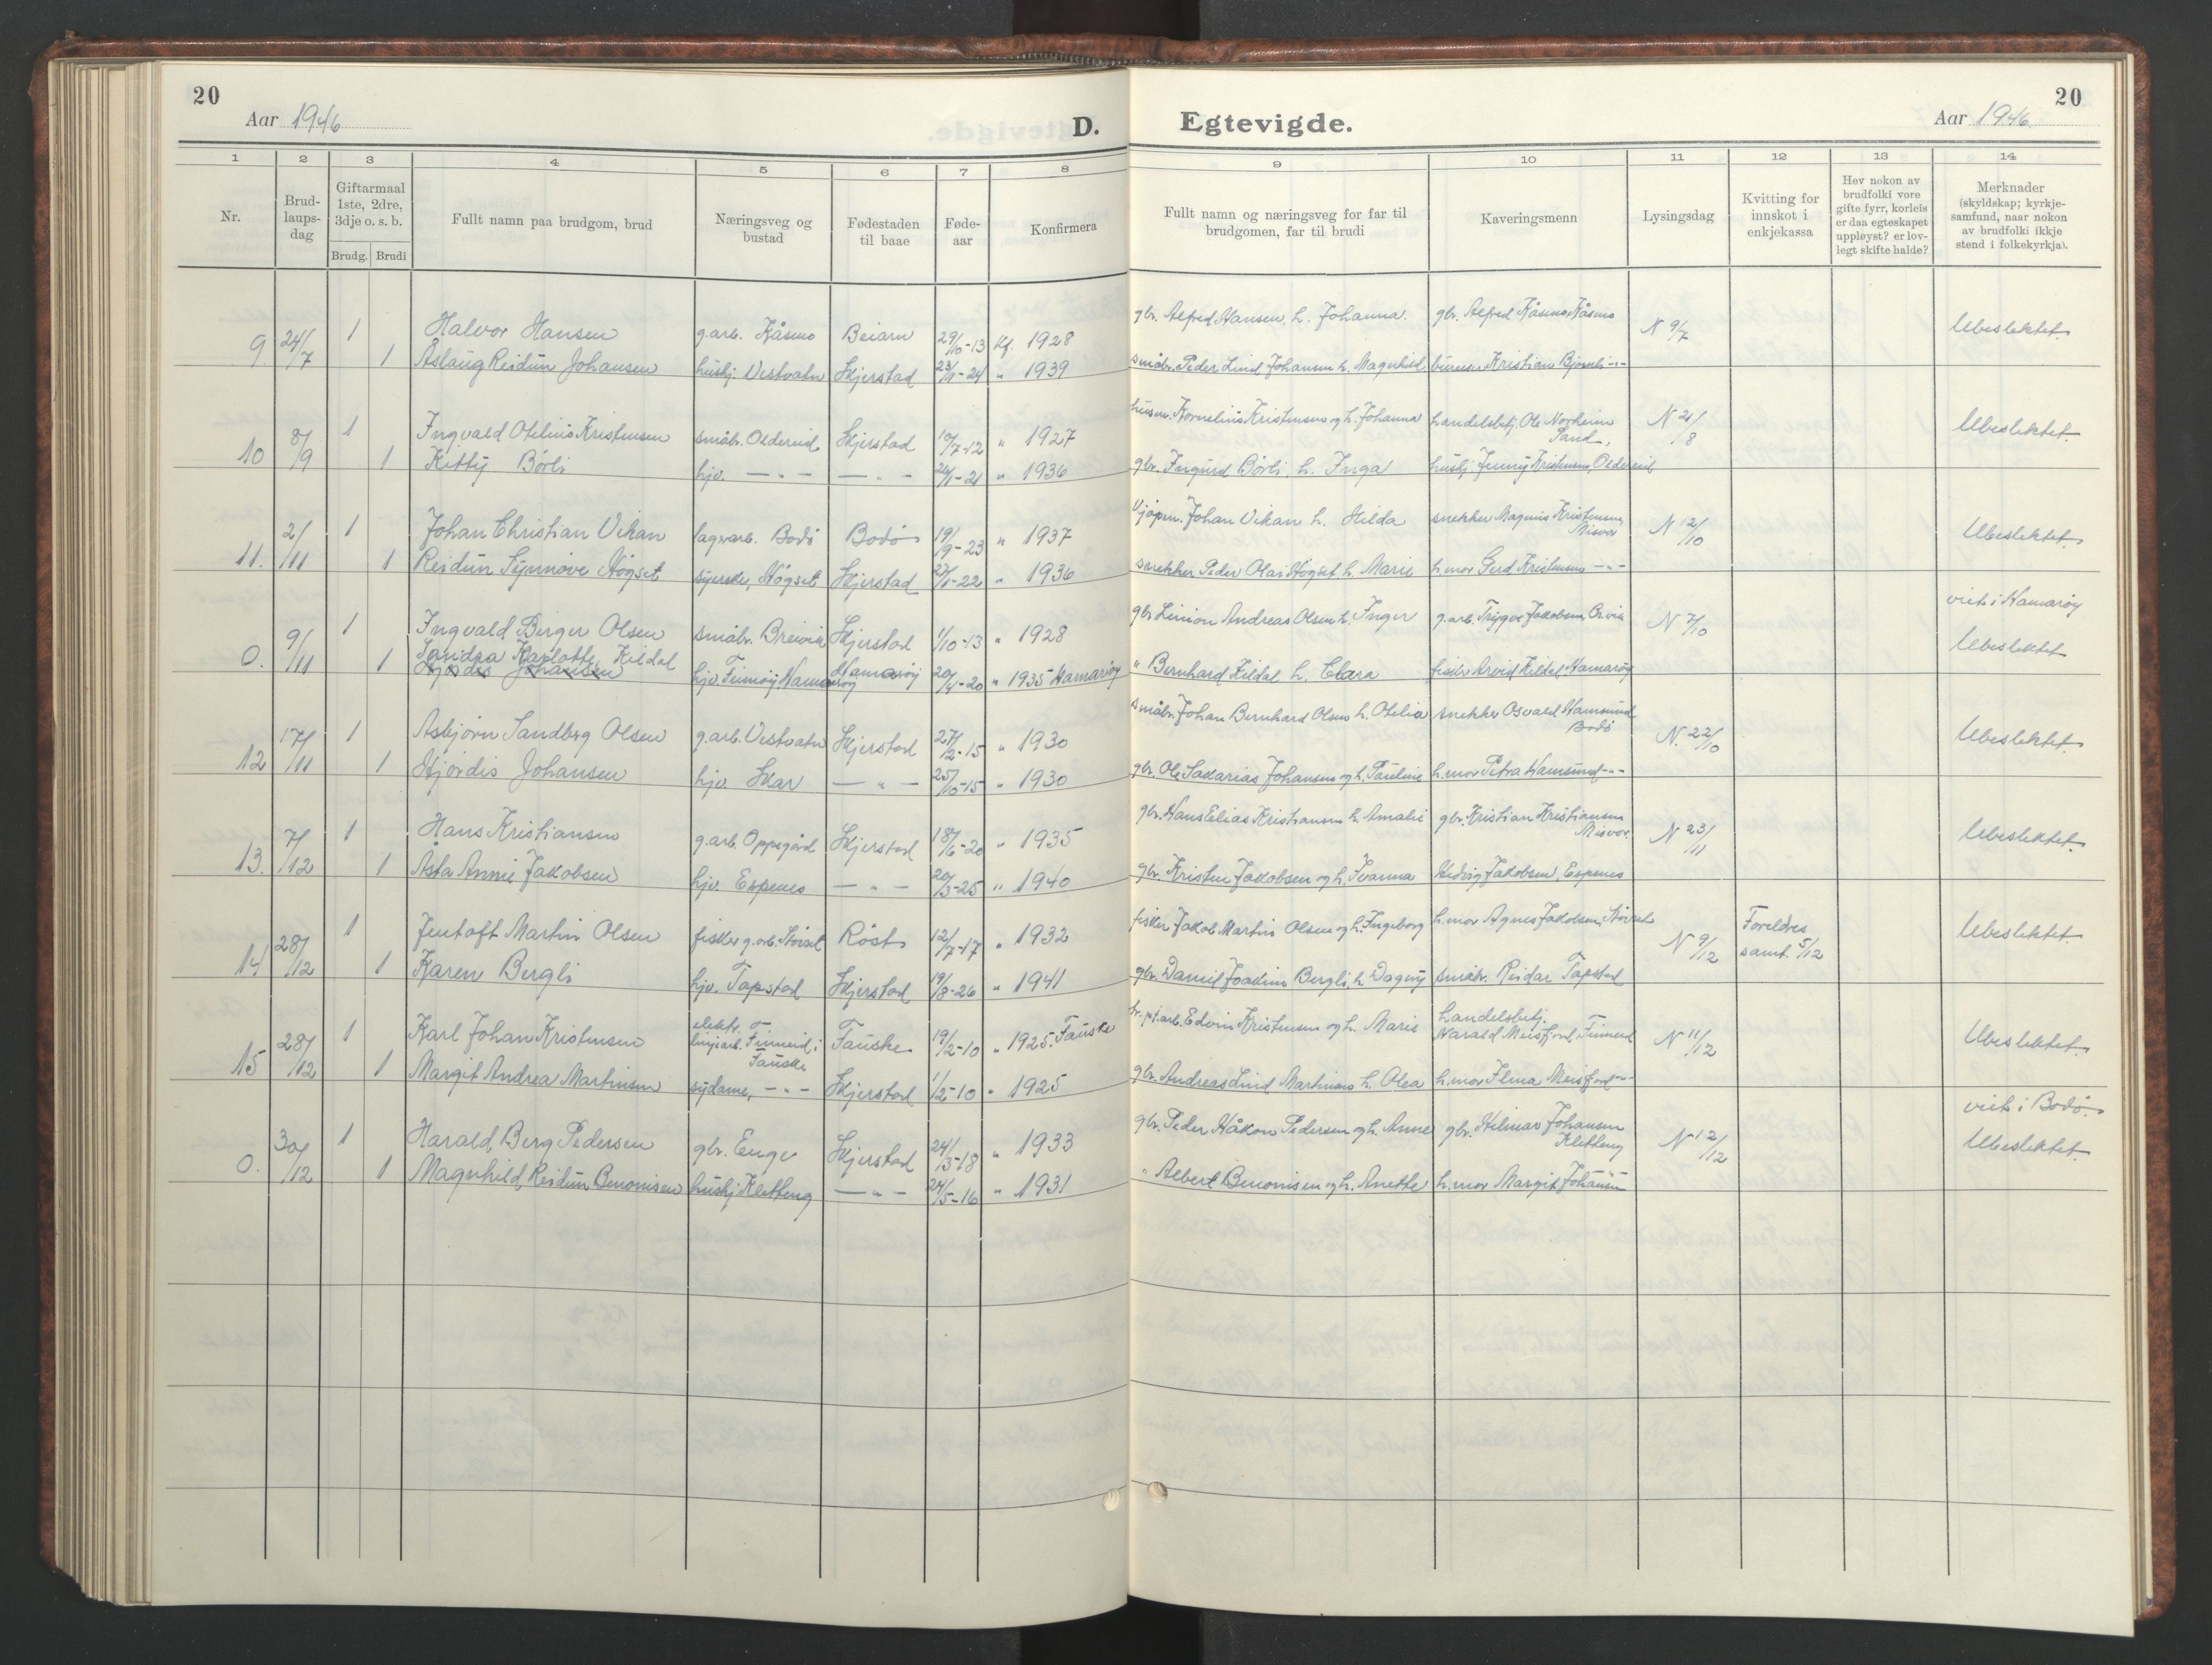 20
Aar 1946
D.
1 2 3 4 5 6 7 8
Nr.
Brud-
laups-
dag
Giftarmaal
1ste, 2dre,
3dje o. s. b.
Brudg. Brudi
Fullt namn paa brudgom, brud
Næringsveg og
bustad
Fødestaden
til baae
Føde-
aar
Konfirmera
9. 24/7 1 Halvor Hansen g.arb. Kåsmo Beiarn 29/10-13 Kf. 1928
1 Åslaug Reidun Johansen hushj. Vestvatn Skjerstad 23/9-24 " 1939
10 8/9 1 Ingvald Otelius Kristensen småbr. Oldereid Skjerstad 10/7-12 " 1927
1 Kitty Börli hjv. — " — — " — 26/1-21 " 1936
11. 2/11 1 Johan Christian Vikan lagerarb. Bodö Bodö 19/9-23 " 1937
1 Reidun Synnöve Högset syerske, Högset Skjerstad 23/1-22 " 1936
0. 9/11 1 Ingvald Birger Olsen småbr. Breivik Skjerstad 1/10-13 " 1928
1 Sandra Karlotte Kildal
Hjördis Johansen hjv. Finnöy, Hamaröy Hamaröy 20/4-20 " 1935 Hamaröy
12 17/11 1 Asbjörn Sandberg Olsen g.arb. Vestvatn Skjerstad 27/12-15 " 1930
1 Hjördis Johansen hjv. Skar — " — 25/10-15 " 1930
13. 7/12 1 Hans Kristiansen g.arb. Oppegård Skjerstad 18/6-20 " 1935
1 Åsta Annie Jakobsen hjv. Espenes — " — 20/3-25 " 1940
14 28/12 1 Jentoft Martin Olsen fisker g.arb. Störset Röst 12/7-17 " 1932
1 Karen Bergli hjv. Tapstad Skjerstad 19/8-26 " 1941
15 28/12 1 Karl Johan Kristensen elektr. linjearb. Finneid i Fauske Fauske 19/2-10 " 1925. Fauske
1 Margit Andrea Martinsen sydame, — " — Skjerstad 1/2-10 " 1925
0. 30/12 1 Harald Berg Pedersen gbr. Enge Skjerstad 24/3-18 " 1933
1 Magnhild Reidun Benonisen hushj. Kletteng — " — 24/5-16 " 1931
20
Egtevigde.
Aar 1946.
9 10 11 12 13 14
Fullt namn og næringsveg for far til
brudgomen, far til brudi
Kaveringsmenn
Lysingsdag
Kvitting for
innskot i
enkjekassa
Hev nokon av
brudfolki vore
gifte fyrr, korleis
er daa egteskapet
uppløyst? er lov-
legt skifte halde?
Merknader
(skyldskap; kyrkje-
samfund, naar nokon
av brudfolki ikkje
stend i folkekyrkja).
gbr. Alfred Hansen, h. Johanna. gbr. Alfred Kåsmo, Kåsmo N 9/7 Ubeslektet.
småbr. Peder Lind Johansen h. Magnhild. Kristian Björnli - " -
husm. Kornelius Kristensen og h. Johanna handelsbetj. Ole Norheim Sand, N 21/8 Ubeslektet.
gbr. Ingvard Börli, h. Inga hushj. Jenny Kristensen, Oldereid
Johan Vikan h. Hilda snekker Magnus Kristensen, Misvær N 12/10 Ubeslektet.
snekker Peder Olai Högset h. Marie h.mor Gerd Kristensen - " -
viet i Hamaröy
gbr. Simon Andreas Olsen h. Inger g.arb. Trygve Jakobsen N 7/10 Ubeslektet
" Bernhard Kildal h. Clara fisker Arvid Kildal Hamaröy
småbr. Johan Bernhard Olsen h. Otelia snekker Osvald Hamsund Bodö N. 22/10 Ubeslektet.
gbr. Ole Sakarias Johansen og h. Pauline h.mor Petra Hamsund - " -
gbr. Hans Elias Kristiansen h. Amalie gbr. Kristian Kristiansen Misvær. N 23/11 Ubeslektet.
gbr. Kristen Jakobsen og h. Ivanna Hedvig Jakobsen, Espenes
fisker Jakob Martin Olsen og h. Ingeborg h.mor Agnes Jakobsen, Störset N 9/12 Foreldres samt. 5/12 Ubeslektet.
gbr. Daniel Joakim Bergli, h. Dagny småbr. Reidar Tapstad
Edvin Kristensen og h. Marie handelsbetj. Harald Meisfjord, Finneid N 11/12 Ubeslektet.
gbr. Andreas Lind Martinsen h. Olea h.mor Elma Meisfjord - " -
viet i Bodö.
gbr. Peder Håkon Pedersen og h. Anne gbr. Hilmar Johansen Kletteng N 12/12 Ubeslektet.
" Albert Benonisen og h. Anette h.mor Margit Johansen - " -